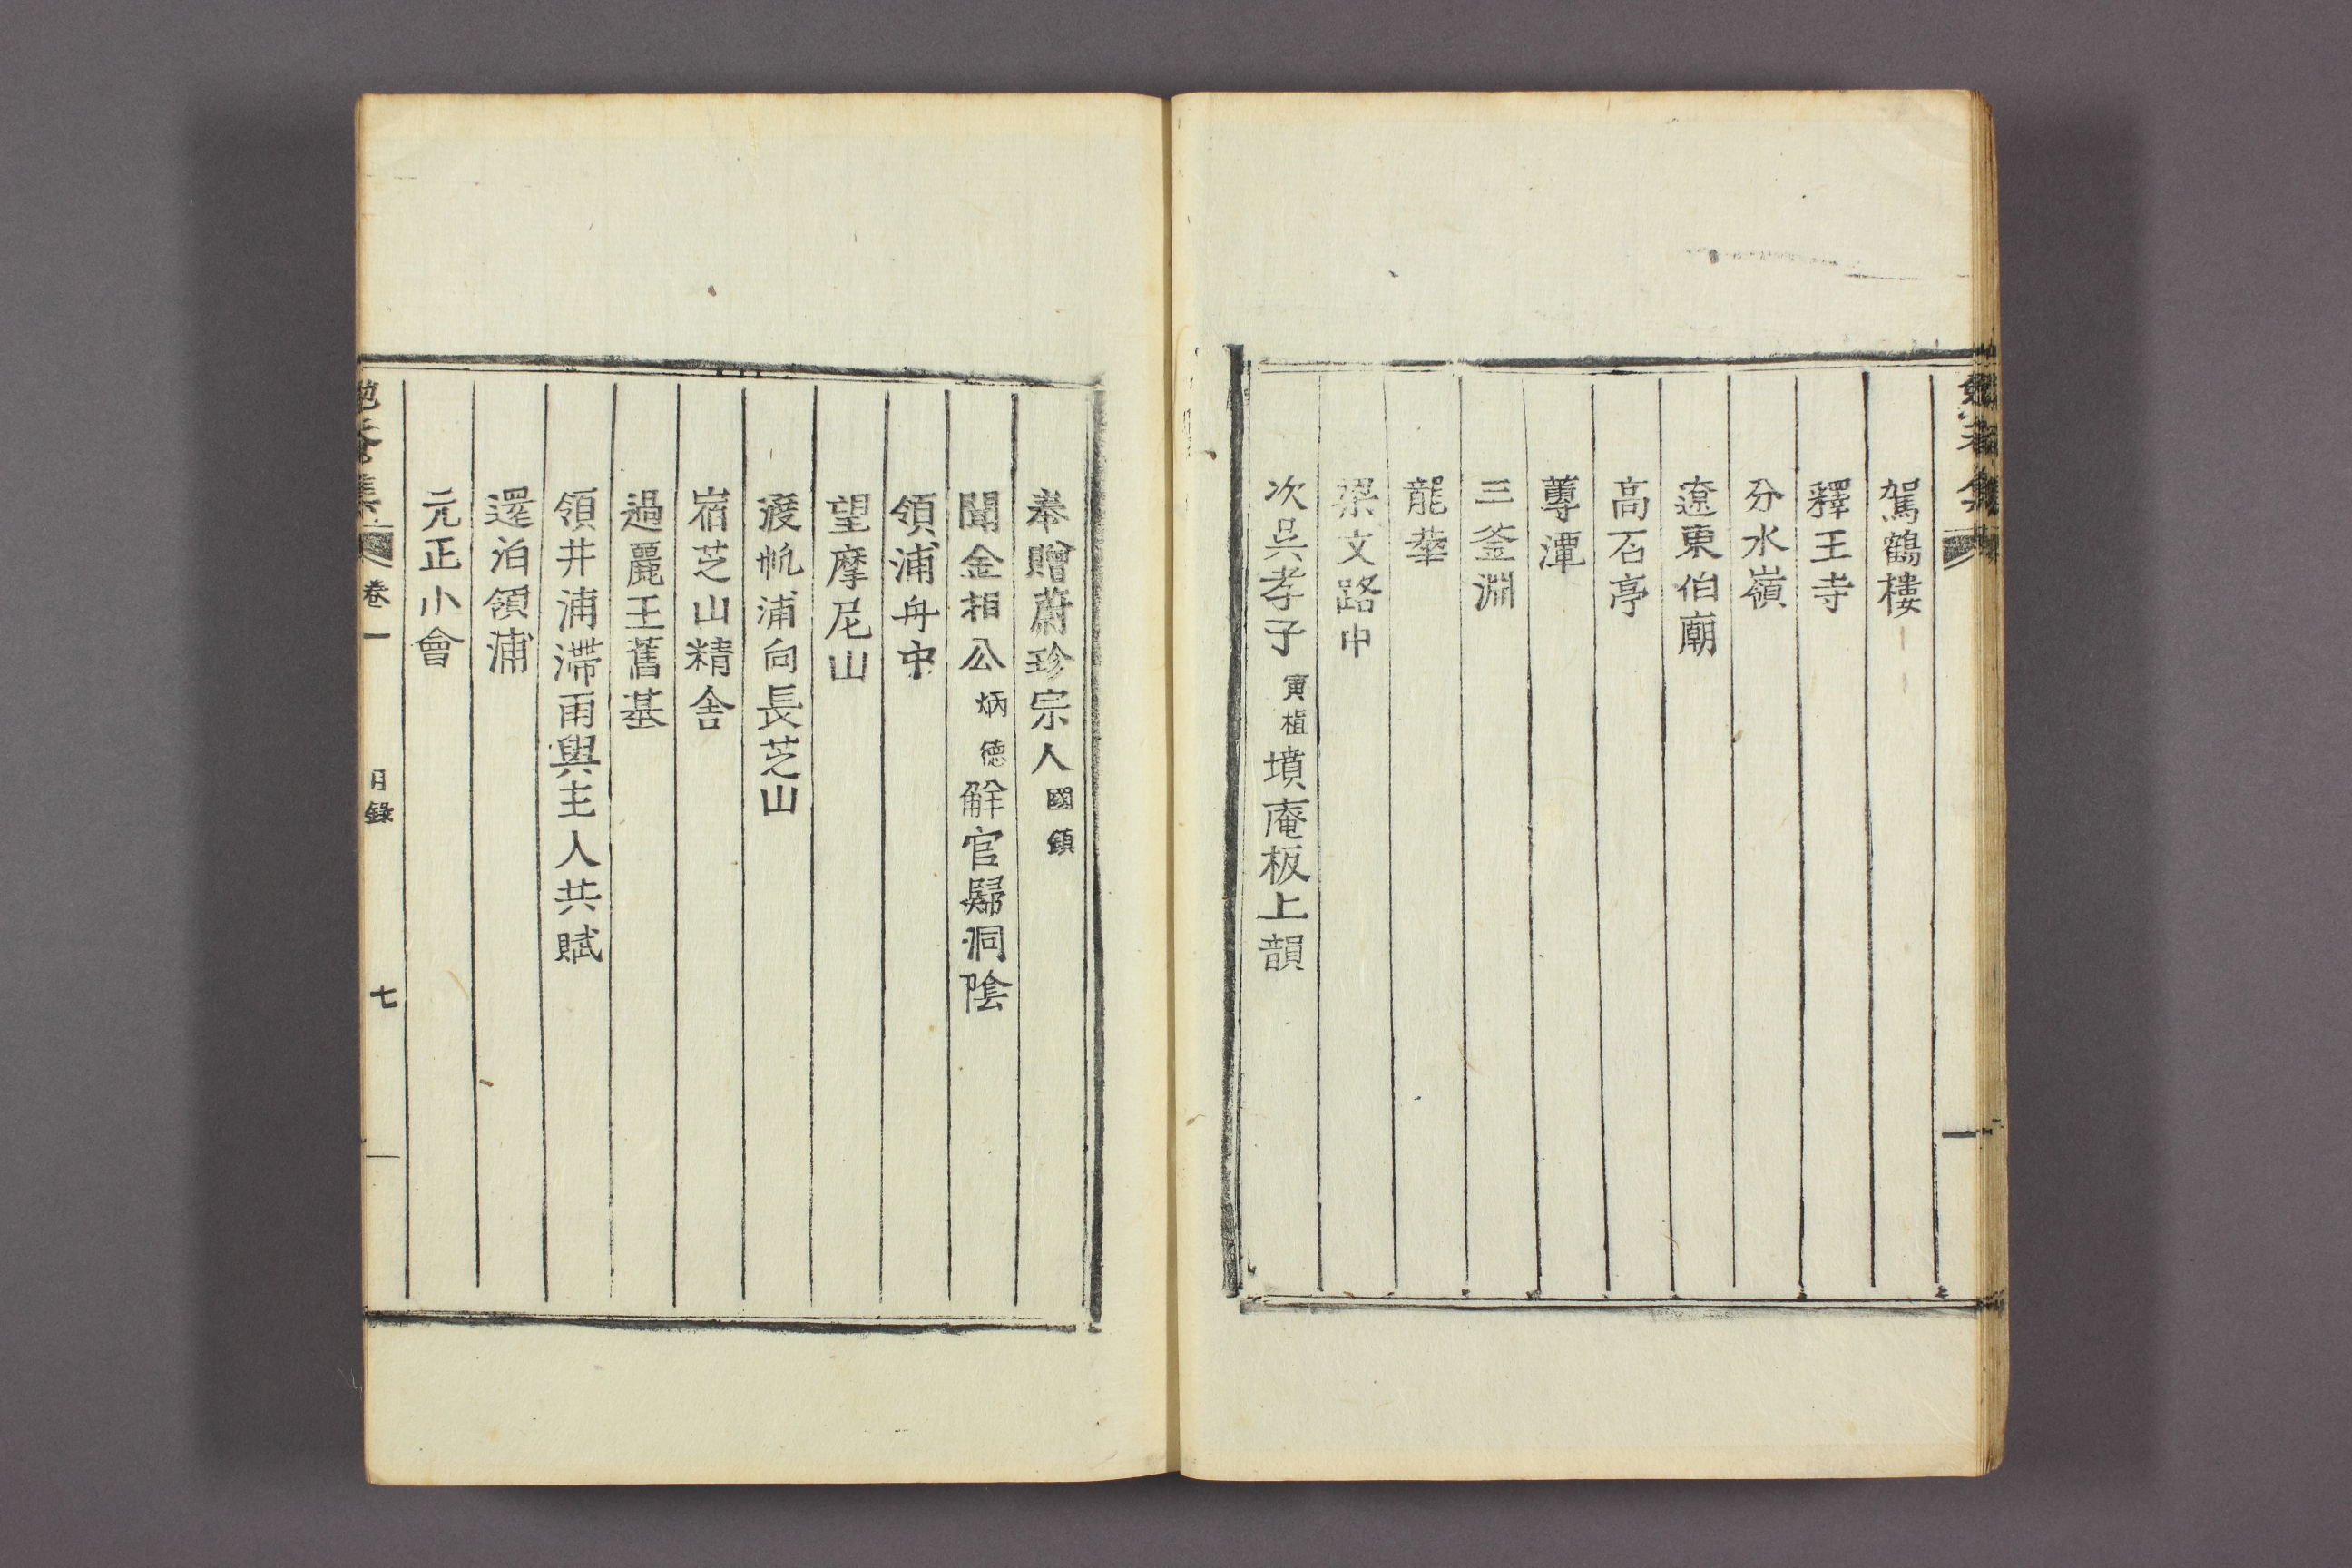 駕鶴樓
釋王寺
分水嶺
遼東伯廟
高石亭
蓴潭
龍華
三釜淵
梁文路中
次吳孝子寅植墳庵板上韻
奉贈蔚珍宗人國鎮
聞金相公炳德解官歸洞陰
領浦舟中
望摩尼山
渡帆浦向長芝山
宿芝山精舍
過麗王舊基
領井浦滯雨與主人共賦
還泊領浦
元正小會
卷一
目錄
七